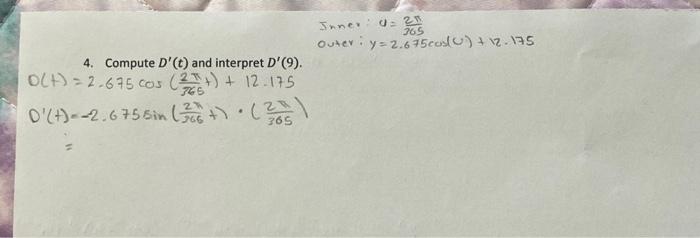 Inner: U = 2π/365
Outer: y = 2.675cos(U) + 12.175
4. Compute D'(t) and interpret D'(9).
D(t) = 2.675 cos (2π/365 t) + 12.175
D'(t) = -2.675 sin (2π/365 t) · (2π/365)
=